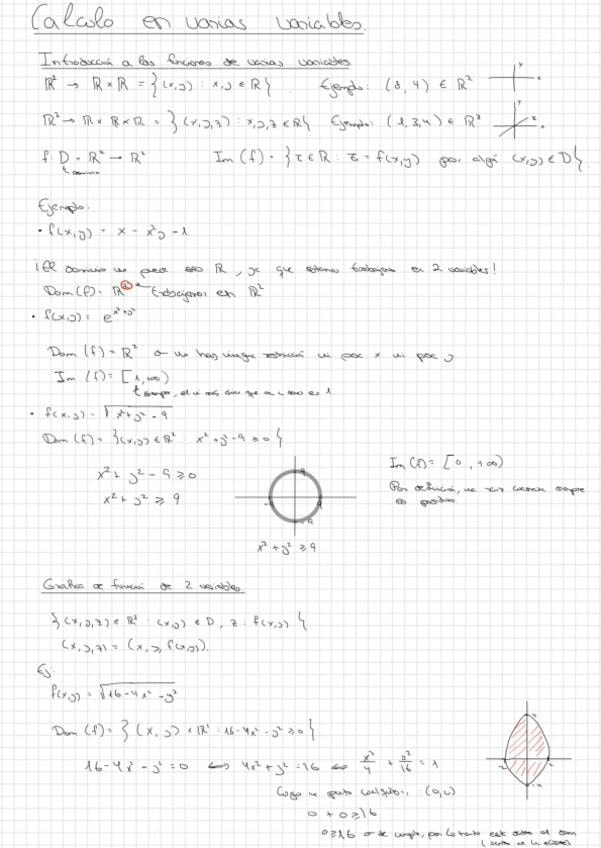 Calculo en varias variables.
Introducción a las funciones de varias variables
ℝ² → ℝ × ℝ = {(x,y) : x,y ∈ ℝ}. Ejemplo: (8, 4) ∈ ℝ²
ℝ³ → ℝ × ℝ × ℝ = {(x,y,z) : x,y,z ∈ ℝ} Ejemplo: (1,3,4) ∈ ℝ³
f: D = ℝ² → ℝ² Im (f) = {z ∈ ℝ : z = f(x,y) para algún (x,y) ∈ D}.
Ejemplo:
• f(x,y) = x - x²y - 1
¡El dominio no puede ser ℝ, ya que estamos trabajando en 2 variables!
Dom (f) = ℝ² ← Trabajamos en ℝ²
• f(x,y) = e^(x²+y²)
Dom (f) = ℝ² no hay ninguna restricción ni para x ni para y.
Im (f) = [1, ∞)
• f(x,y) = √(x² + y² - 9)
Dom (f) = {(x,y) ∈ ℝ² : x² + y² - 9 ≥ 0}
x² + y² - 9 ≥ 0
x² + y² ≥ 9
x² + y² ≥ 9
Im (f) = [0, +∞)
Por definición, una raíz siempre
es positiva
Grafica de función de 2 variables
{(x,y,z) ∈ ℝ³ : (x,y) ∈ D, z = f(x,y)}
(x,y,z) = (x, y, f(x,y)).
Ej:
f(x,y) = √(16 - 4x² - y²)
Dom (f) = {(x, y) ∈ ℝ² : 16 - 4x² - y² ≥ 0}
16 - 4x² - y² = 0 ⇔ 4x² + y² = 16 ⇔ x²/4 + y²/16 = 1
Cogo un punto cualquiera: (0,0)
0 + 0 ≥ 16
0 ≥ 16 no se cumple, por lo tanto está dentro el dom